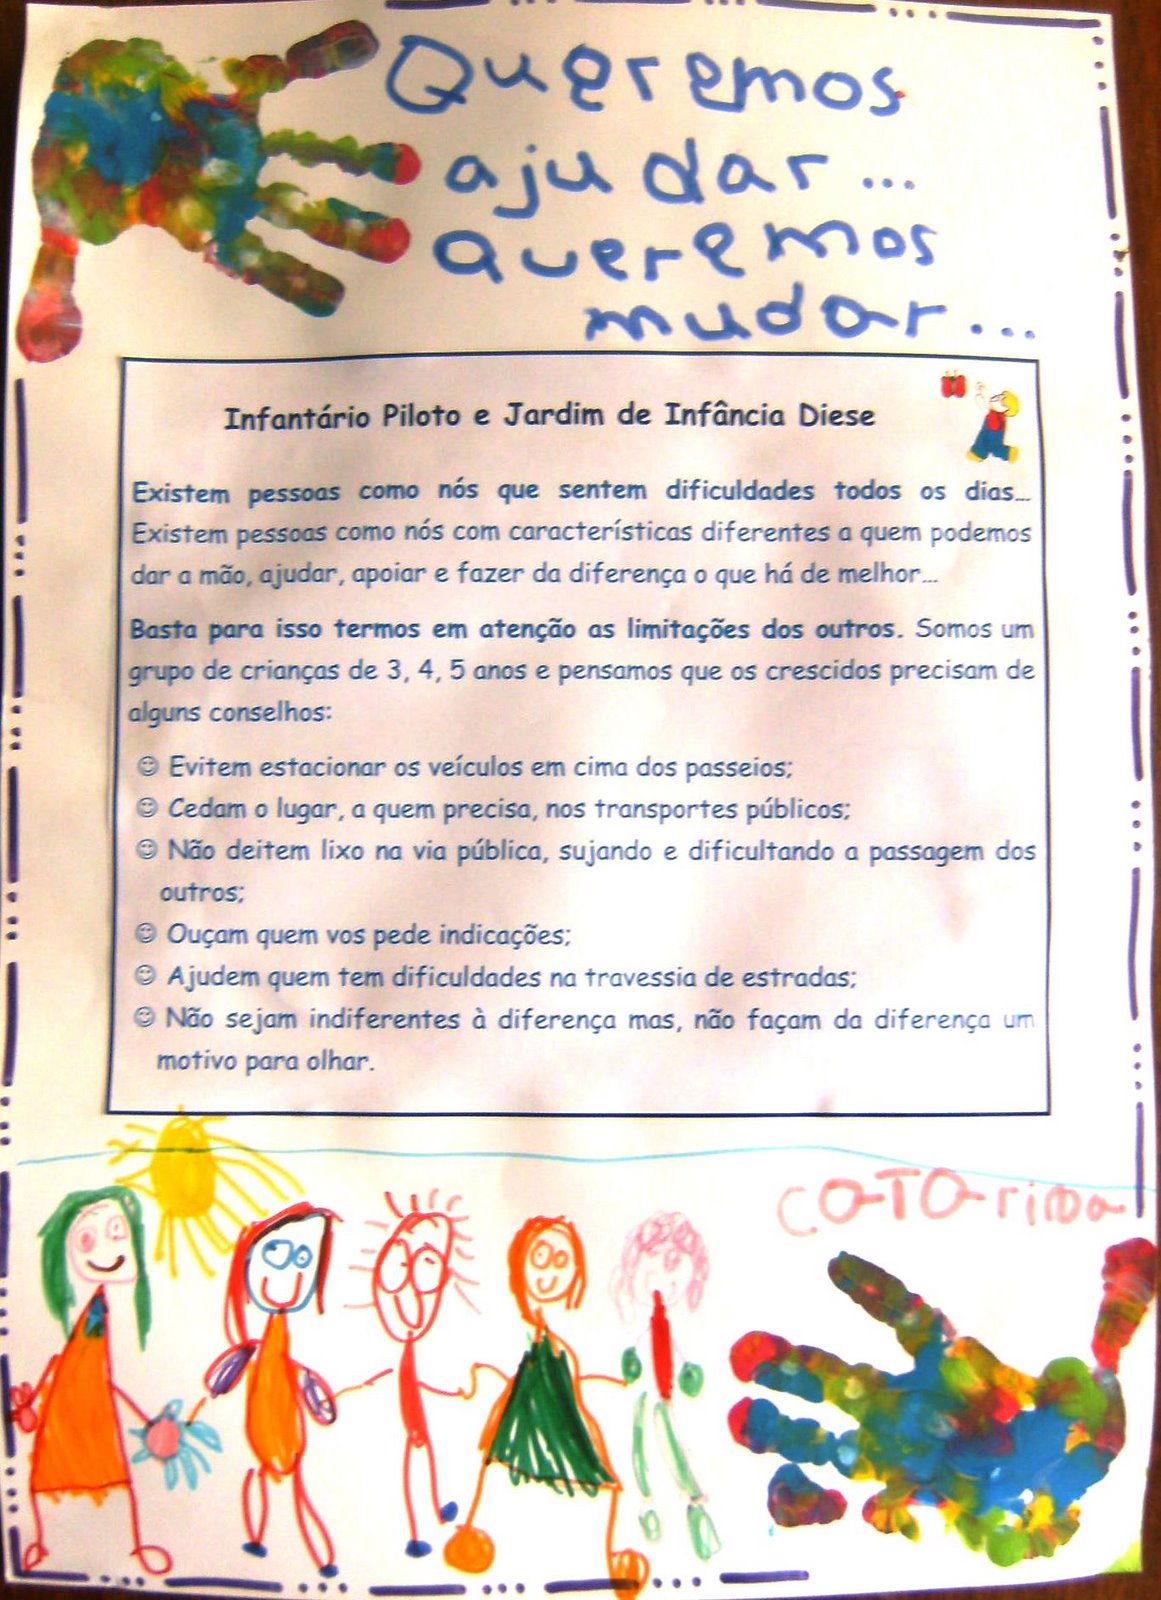 Queremos
ajudar...
queremos
mudar...
Infantário Piloto e Jardim de Infância Diese
Existem pessoas como nós que sentem dificuldades todos os dias...
Existem pessoas como nós com características diferentes a quem podemos
dar a mão, ajudar, apoiar e fazer da diferença o que há de melhor...
Basta para isso termos em atenção as limitações dos outros. Somos um
grupo de crianças de 3, 4, 5 anos e pensamos que os crescidos precisam de
alguns conselhos:
☺ Evitem estacionar os veículos em cima dos passeios;
☺ Cedam o lugar, a quem precisa, nos transportes públicos;
☺ Não deitem lixo na via pública, sujando e dificultando a passagem dos
outros;
☺ Ouçam quem vos pede indicações;
☺ Ajudem quem tem dificuldades na travessia de estradas;
☺ Não sejam indiferentes à diferença mas, não façam da diferença um
motivo para olhar.
CATArina